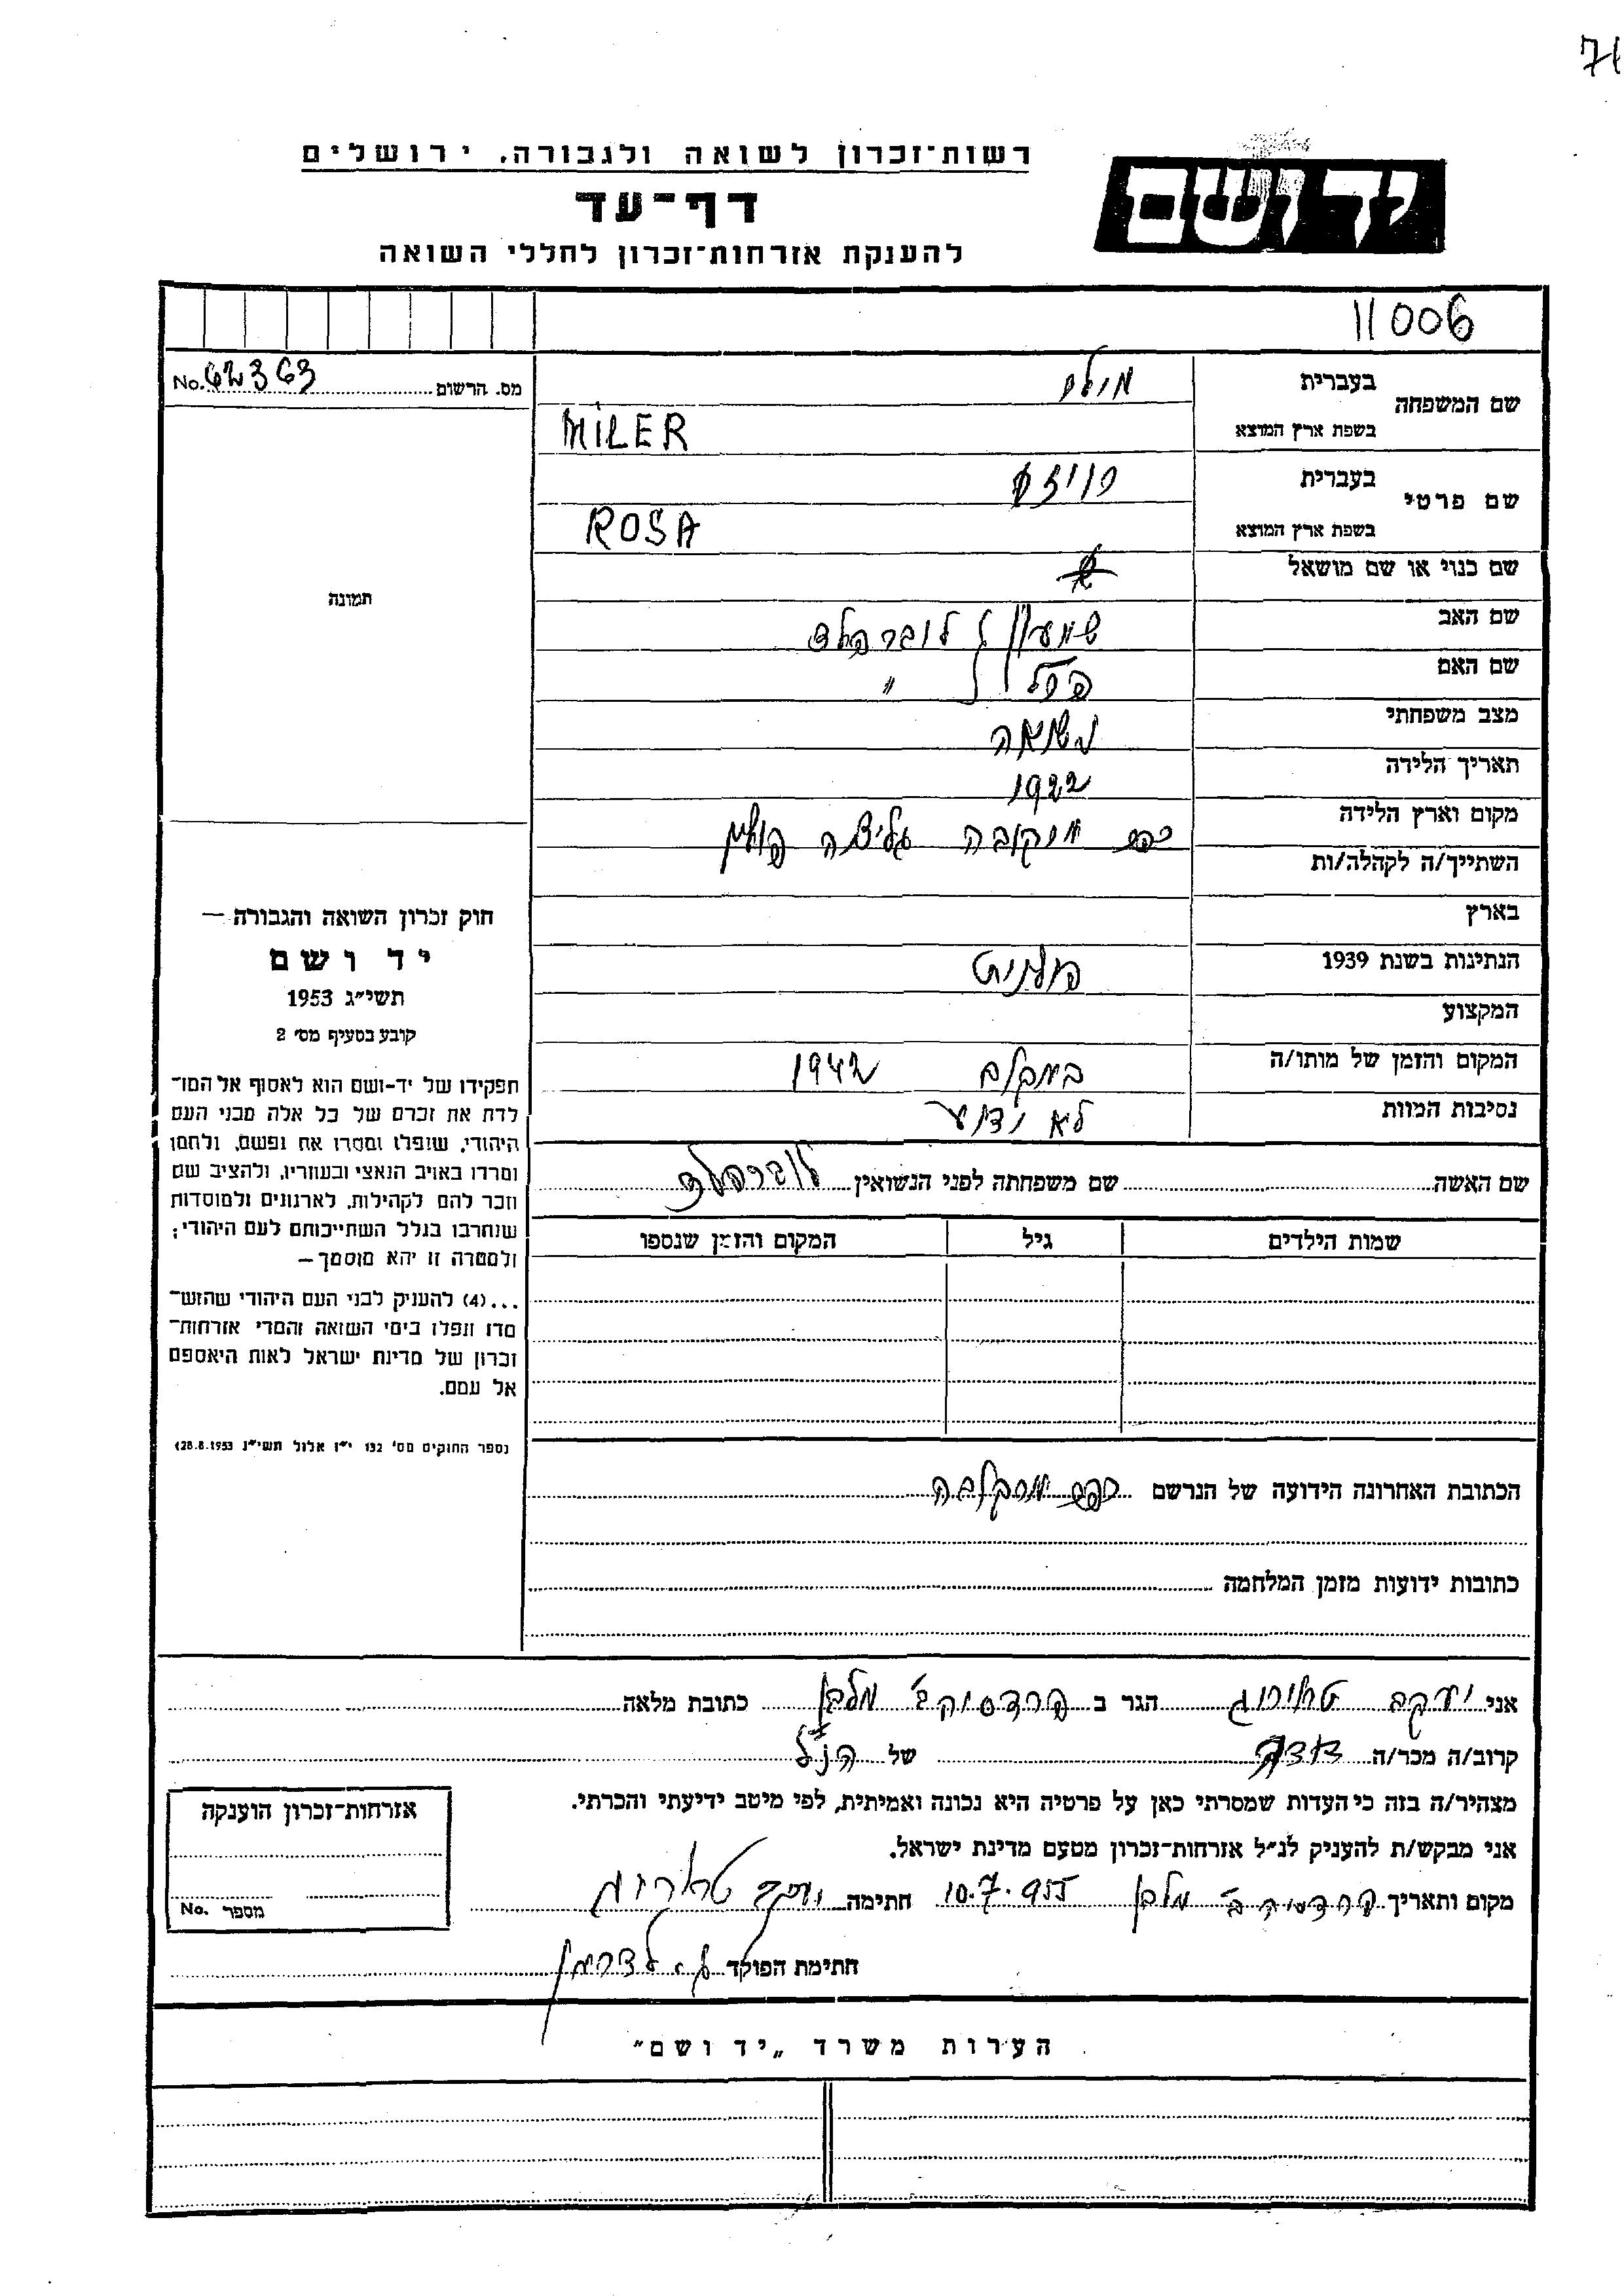 71
רשות־זכרון לשואה ולגבורה, ירושלים
יד ושם
דף־עד
להענקת אזרחות־זכרון לחללי השואה
11006
No. 62363 מס. הרשום
שם המשפחה בעברית מילר
בשפת ארץ המוצא MILER
שם פרטי בעברית רויזא
בשפת ארץ המוצא ROSA
שם כנוי או שם מושאל
תמונה
שם האב שמעון לוברפלד
שם האם "
מצב משפחתי נשואה
תאריך הלידה 1922
מקום וארץ הלידה כפר גליציה פולין
השתייך/ה לקהלה/ות
בארץ
הנתינות בשנת 1939 פולנית
המקצוע
המקום והזמן של מותו/ה 1942
נסיבות המוות לא ידוע
שם האשה שם משפחתה לפני הנשואין לוברפלד
שמות הילדים גיל המקום והזמן שנספו
חוק זכרון השואה והגבורה —
יד ושם
תשי״ג 1953
קובע בסעיף מס׳ 2
תפקידו של יד-ושם הוא לאסוף אל המו־
לדת את זכרם של כל אלה מבני העם
היהודי, שנפלו ומסרו את נפשם, נלחמו
ומרדו באויב הנאצי ובעוזריו, ולהציב שם
וזכר להם לקהילות, לארגונים ולמוסדות
שנחרבו בגלל השתייכותם לעם היהודי;
ולמטרה זו יהא מוסמך —
...(4) להעניק לבני העם היהודי שהוש־
מדו ונפלו בימי השואה והמרי אזרחות־
זכרון של מדינת ישראל לאות היאספם
אל עמם.
(ספר החוקים מס׳ 132 י״ז אלול תשי״ג 28.8.1953)
הכתובת האחרונה הידועה של הנרשם כפר
כתובות ידועות מזמן המלחמה
אני יעקב הגר ב פרדסוקב׳ מלבן כתובת מלאה
קרוב/ה מכר/ה דודה של הנ״ל
מצהיר/ה בזה כי העדות שמסרתי כאן על פרטיה היא נכונה ואמיתית, לפי מיטב ידיעתי והכרתי.
אני מבקש/ת להעניק לנ״ל אזרחות־זכרון מטעם מדינת ישראל.
מקום ותאריך פרדסוקב׳ מלבן 10.7.955 חתימה יעקב
חתימת הפוקד
אזרחות־זכרון הוענקה
מספר No.
הערות משרד „יד ושם"